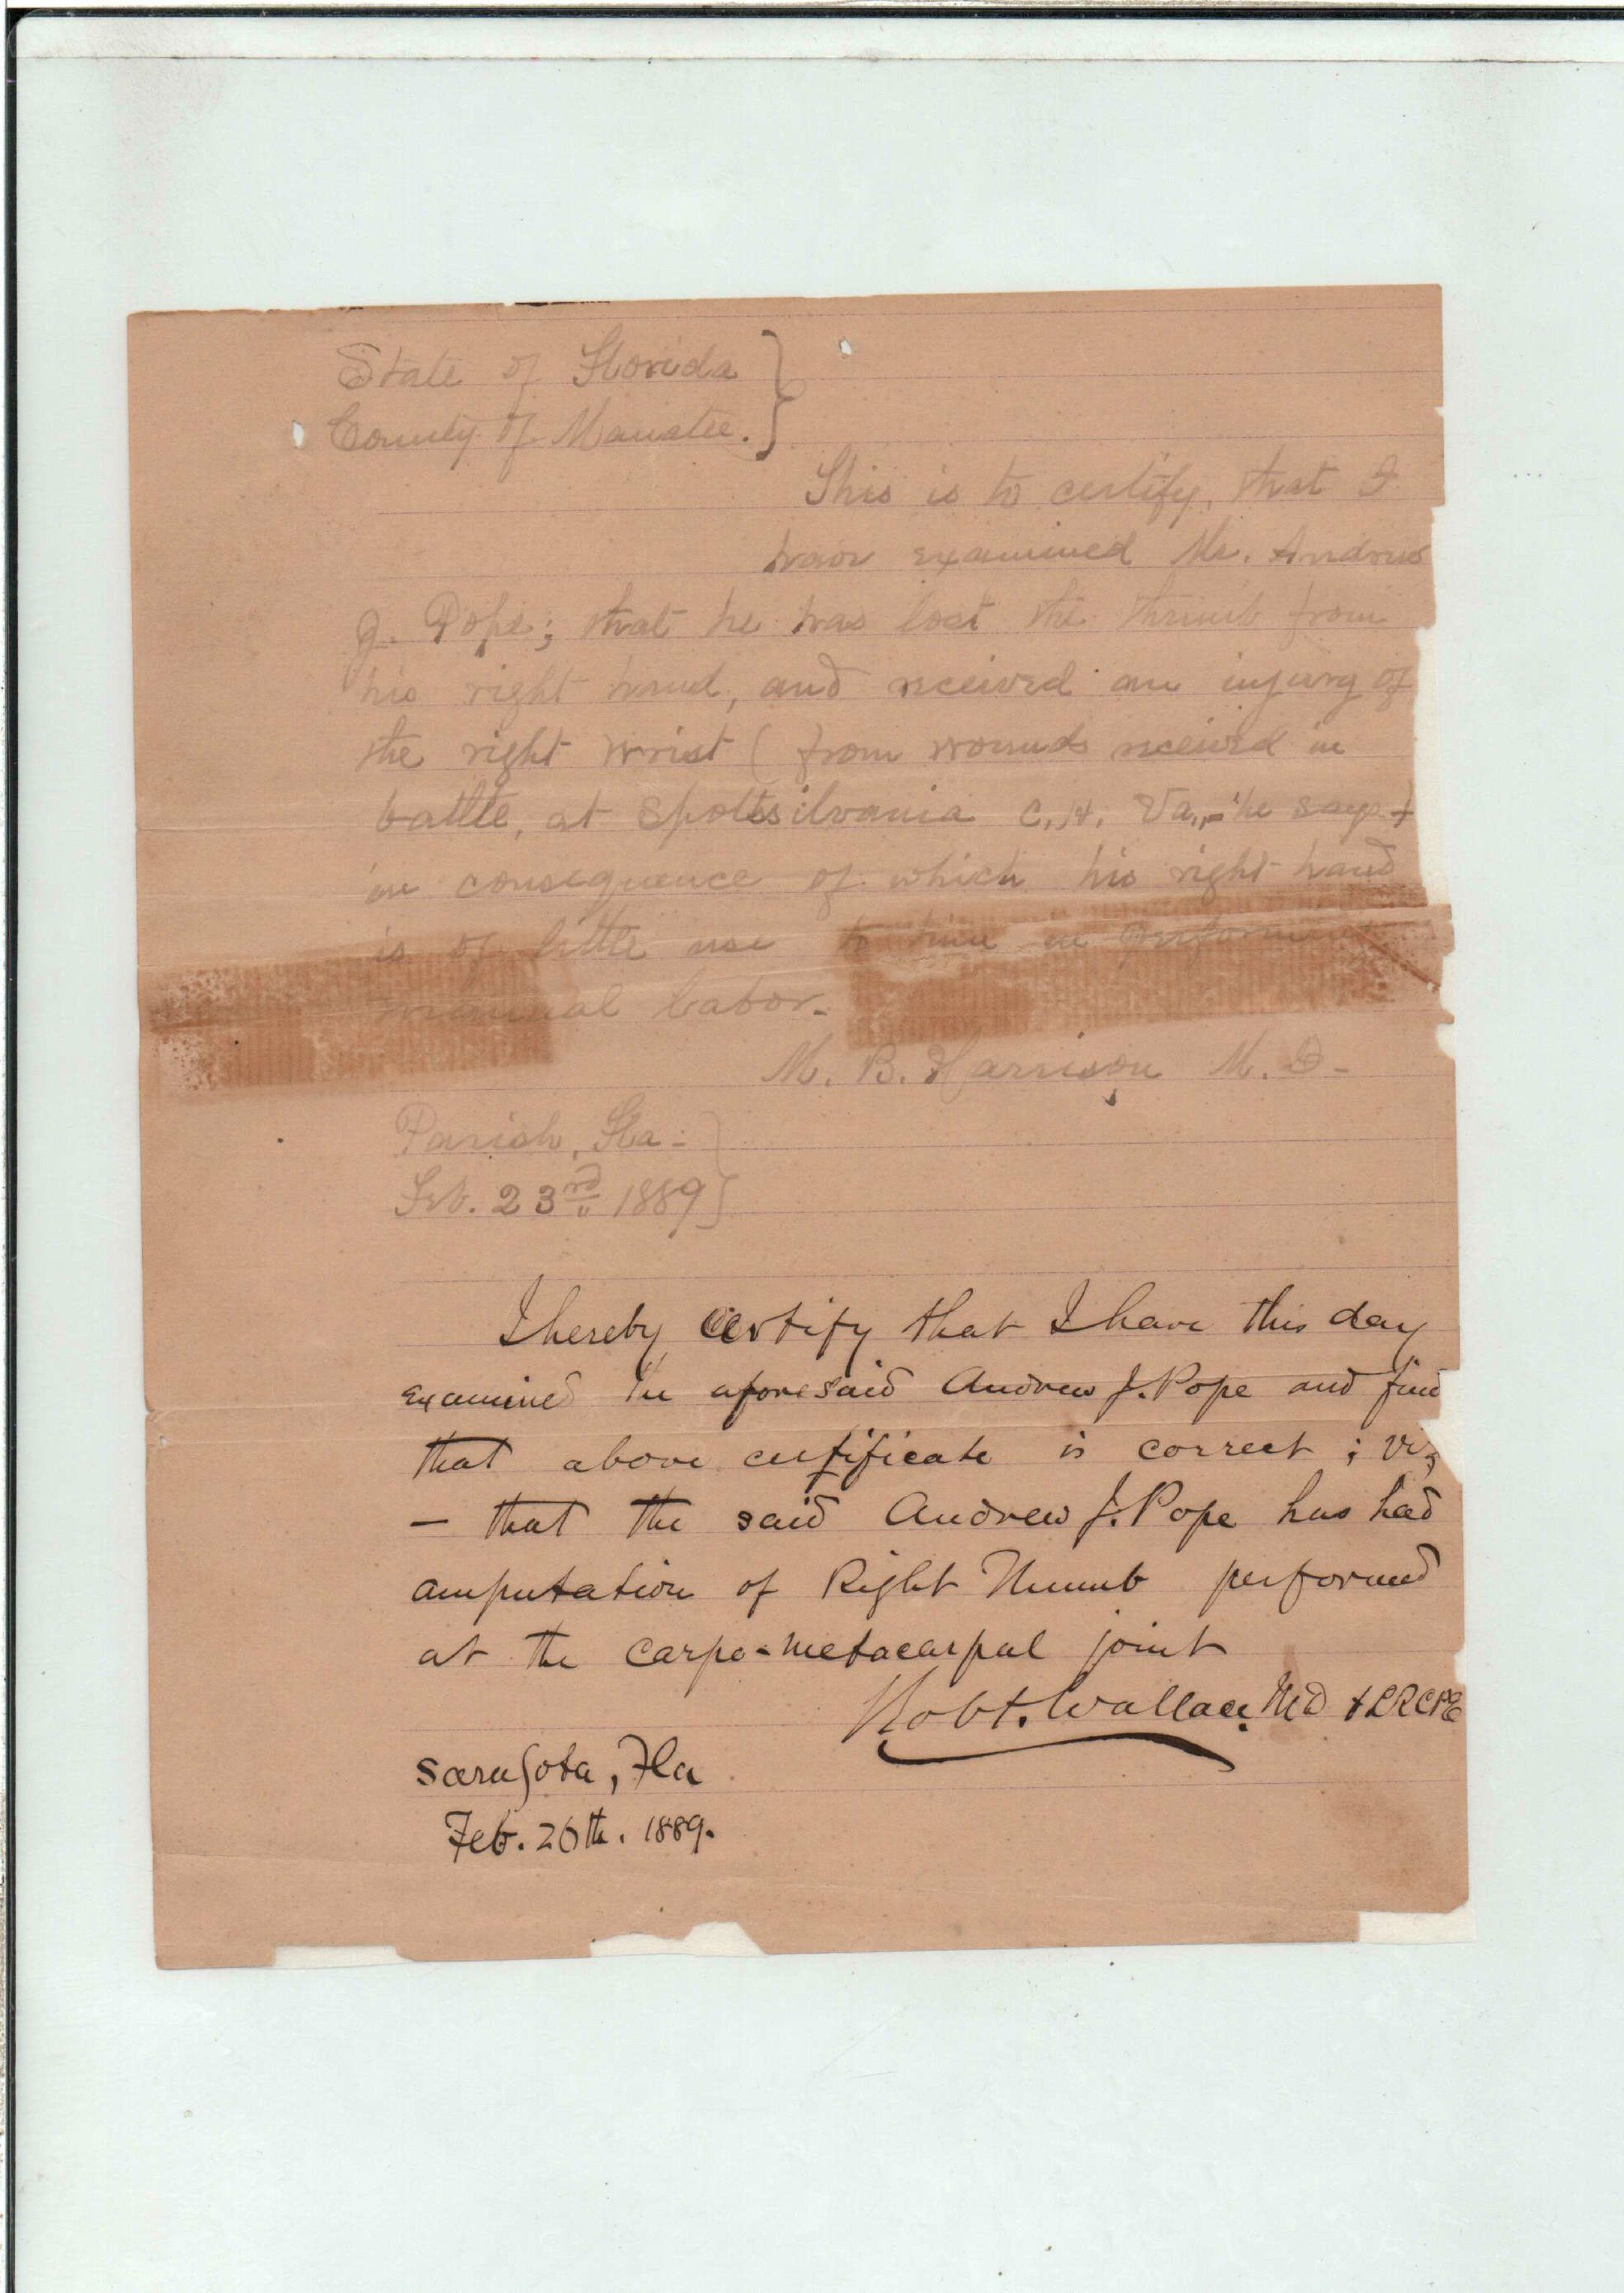 State of Florida }
County of Manatee. }
This is to certify, that I
have examined Mr. Andrew
J. Pope; that he has lost the thumb from
his right hand, and received an injury of
the right wrist ( from wounds received in
battle, at Spottssilvania C. H. Va., - he says -)
in consequence of which his right hand
is of little use to him in performing
manual labor.
M. B. Harrison M. D.
Parish, Fla. }
Feb. 23rd 1889 }
I hereby certify that I have this day
examined the aforesaid Andrew J. Pope and find
that above certificate is correct ; viz
— that the said Andrew J. Pope has had
amputation of Right Thumb performed
at the carpo-metacarpal joint
Robt. Wallace MD & LRCPE
Sarasota, Fla
Feb. 26th. 1889.